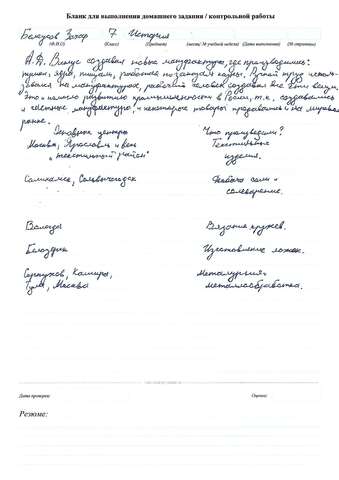 Бланк для выполнения домашнего задания / контрольной работы
Белоусов Захар 7 История
(Ф.И.О) (Класс) (Предмет) (месяц / № учебной недели) (Дата выполнения) (№ страницы)
А. Д. Виниус создавал новые мануфактуры, где производились:
пушки, ядра, пищали, работают по заказам казны. Ручной труд исполь-
зовался на мануфактурах, рабочий человек создавал все сам вещи.
Это начало развитию промышленности в России, т.к. создавались
и частные мануфактуры и некоторые товары продавались на мировом
рынке.
Основные центры Что производили?
Москва, Ярославль и весь Текстильные
"текстильный район" изделия.
Соликамск, Сольвычегодск Добыча соли и
солеварение.
Вологда Вязание кружев.
Белоозеро Изготовление ложек.
Серпухов, Кашира, Металлургия,
Тула, Москва металлообработка.
Дата проверки: Оценка:
Резюме: